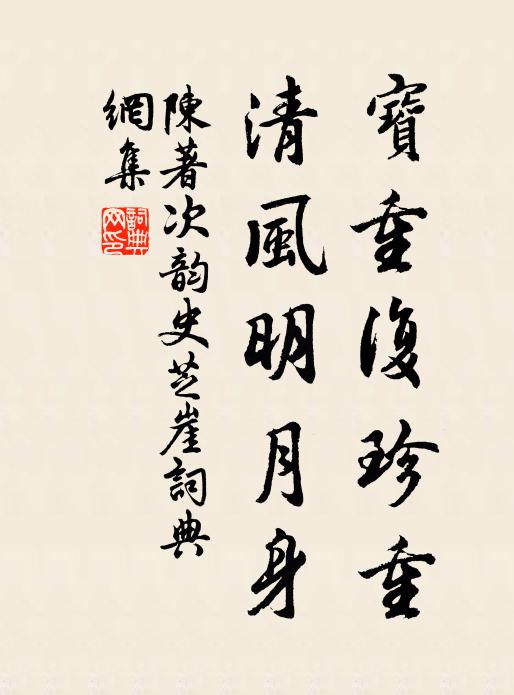 寶重復珍重
清風明月身
陳著次韵史芝崖詞典
網集
詞典
网印